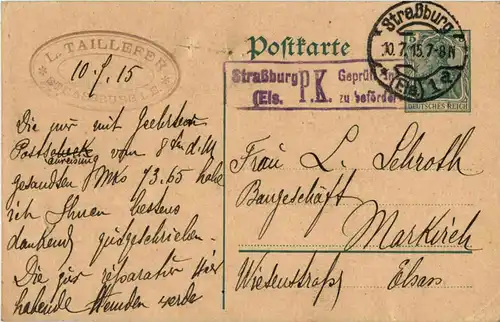 L. TAILLEFER
STRASSBURG i. E.
10. 7. 15
Postkarte
Straßburg
10. 7. 15. 7-8 N
(Els) 1 a.
DEUTSCHES REICH
Straßburg P.K. Geprüft
(Els. zu beförder
Die mir mit geehrten
Postscheck
anweisung vom 8ten d. M
gesandten Mks 73.65 habe
ich Ihnen bestens
dankend gutgeschrieben.
Die zur reparatur hier
habende Hemden werde
Frau L. Schroth
Baugeschäft
Markirch
Wiesenstraße Elsass